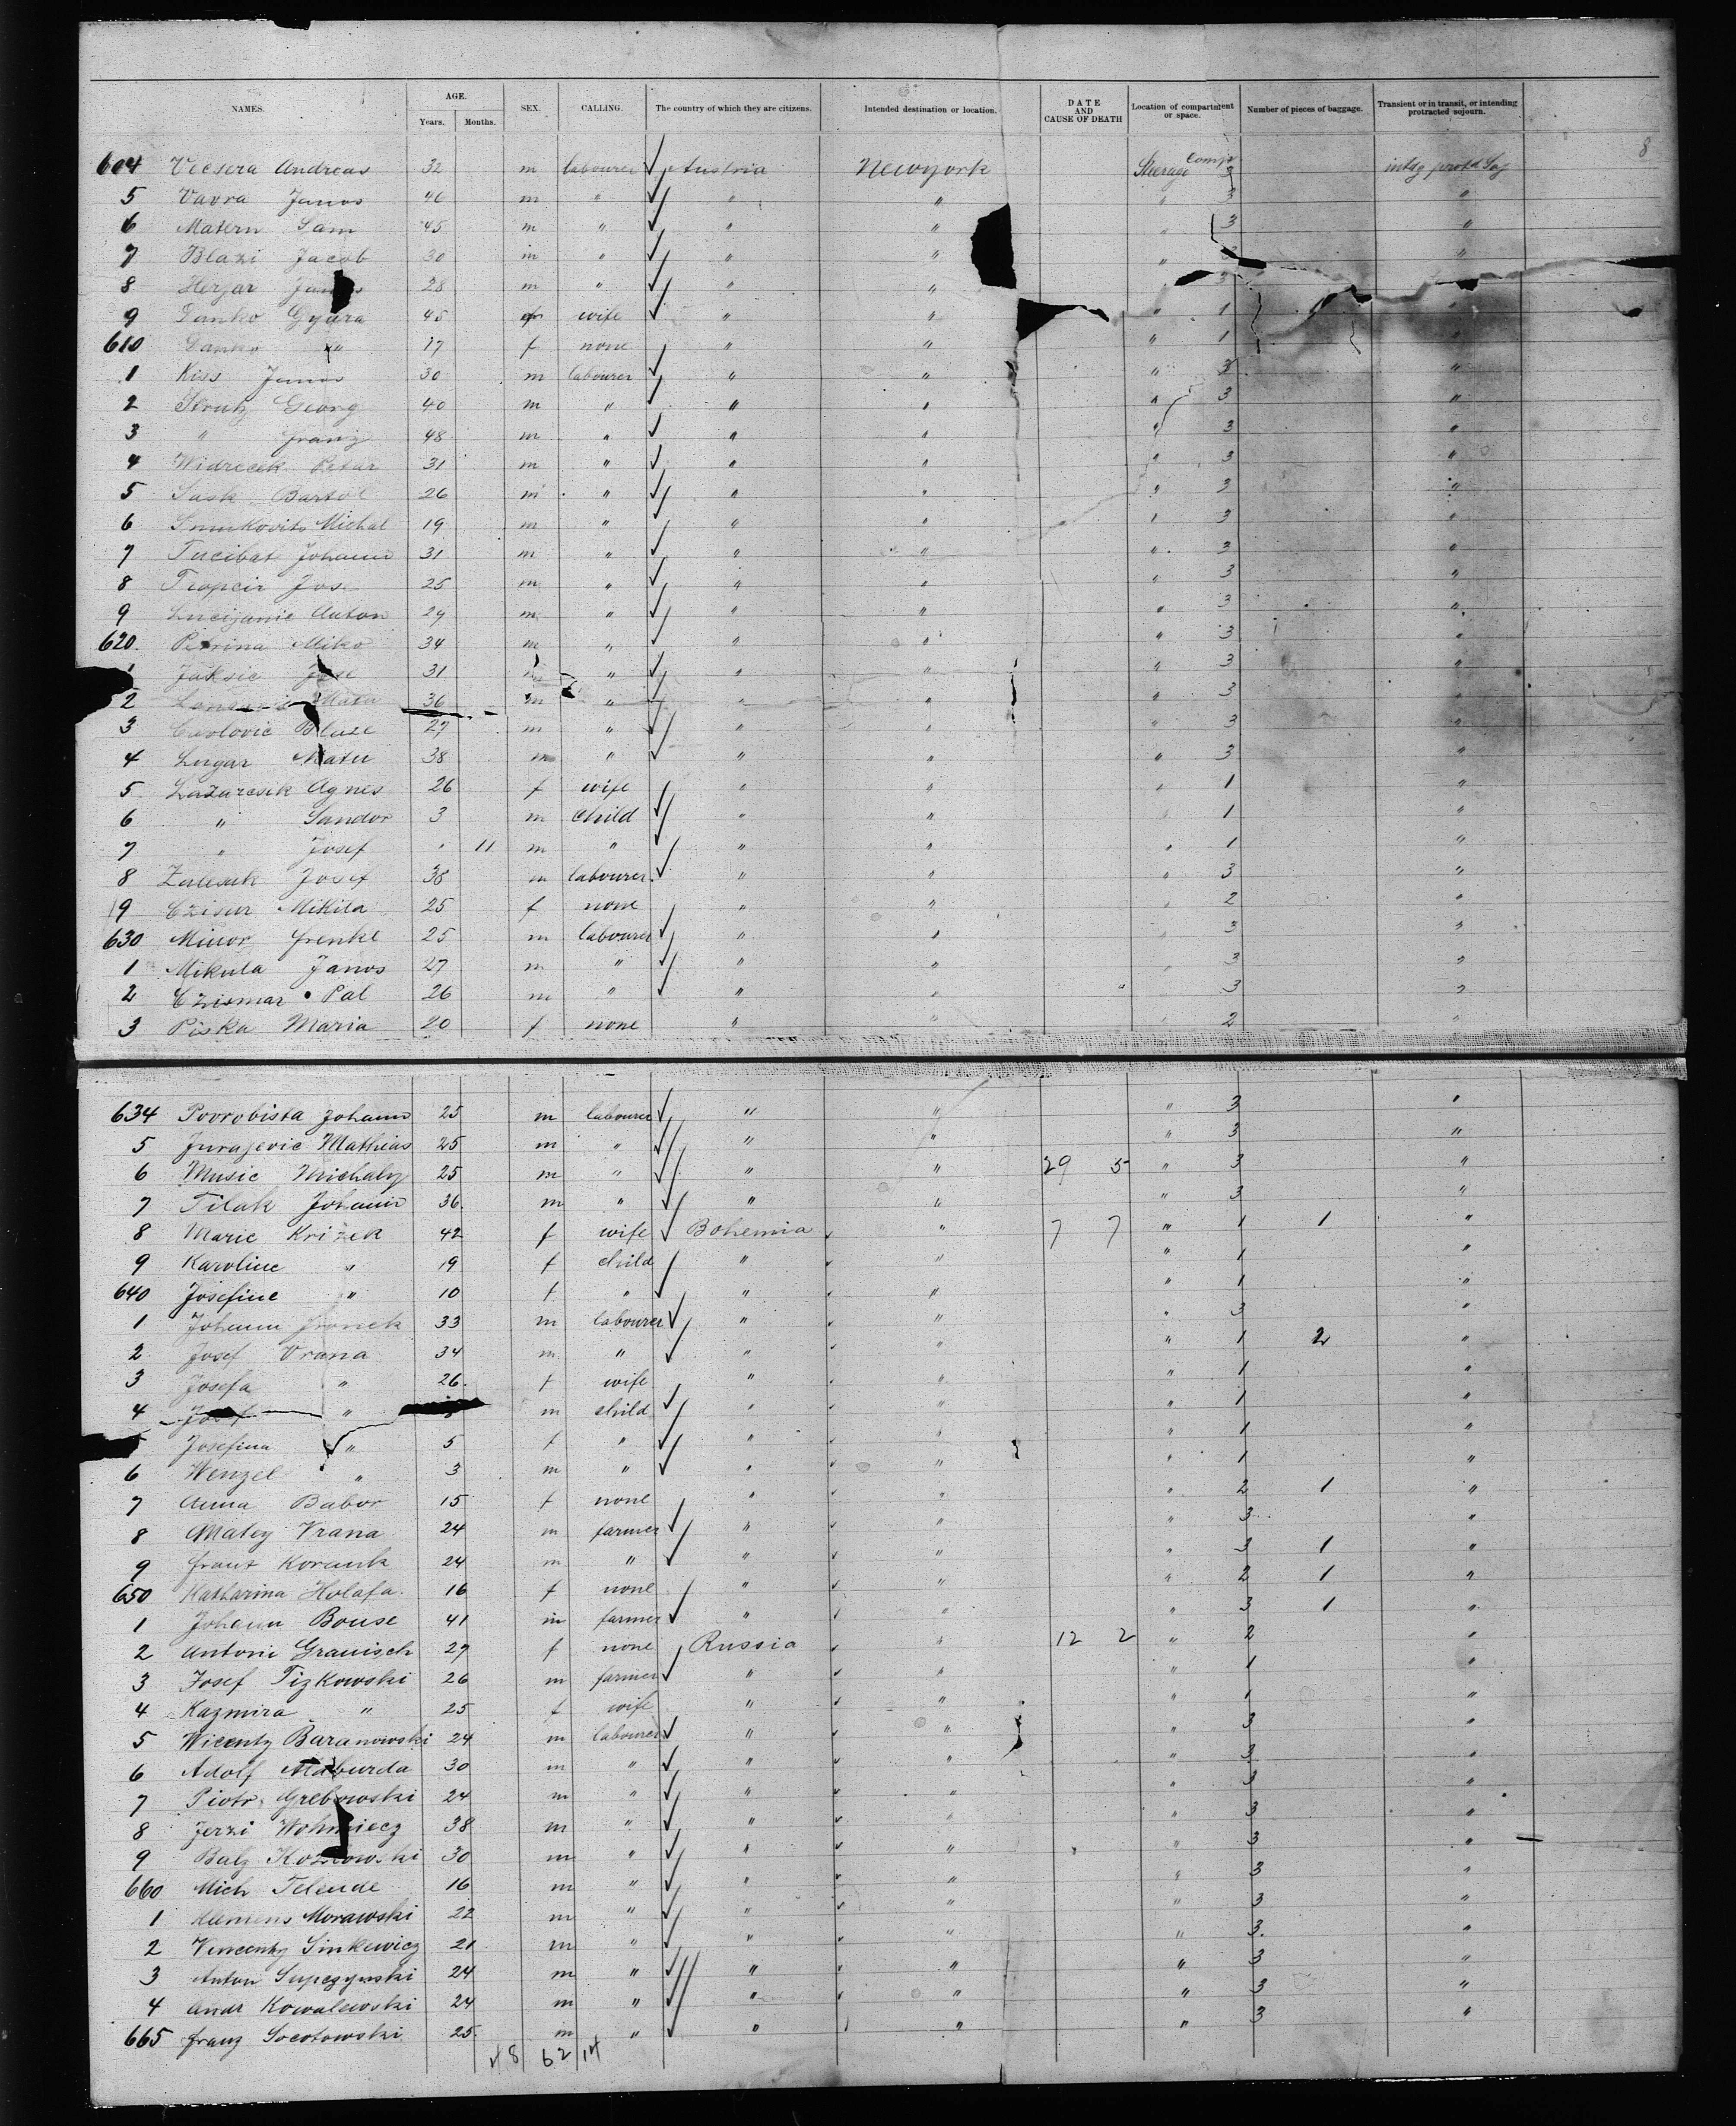 NAMES. AGE. Years. Months. SEX. CALLING. The country of which they are citizens. Intended destination or location. DATE AND CAUSE OF DEATH Location of compartment or space. Number of pieces of baggage. Transient or in transit, or intending protracted sojourn.
8
604 Vecsera Andreas 32 m labourer Austria Newyork Steerage Comp 3 intdg protd Soj
5 Vavra Janos 46 m " " " " 3 "
6 Matern Sam 45 m " " " " 3 "
7 Blazi Jacob 30 m " " " " 3 "
8 Herjar 28 m " " " " 3 "
9 Danko Gyura 45 f wife " " " 1 "
610 Danko " 17 f none " " " 1 "
1 Kiss Janos 30 m labourer " " " 3 "
2 Strutz Georg 40 m " " " " 3 "
3 " Franz 48 m " " " " 3 "
4 Widrecek Petar 31 m " " " " 3 "
5 Sask Bartol 26 m " " " " 3 "
6 Michal 19 m " " " " 3 "
7 Tucibat Johann 31 m " " " " 3 "
8 Jose 25 m " " " " 3 "
9 Lucijanic Anton 29 m " " " " 3 "
620. Petrina Miko 34 m " " " " 3 "
1 Jaksic Jose 31 " " " " 3 "
2 Matu 36 m " " " " 3 "
3 Cavlovic Blaze 27 m " " " " 3 "
4 Lugar Matu 38 m " " " " 3 "
5 Lazarcsik Agnes 26 f wife " " " 1 "
6 " Sandor 3 m child " " " 1 "
7 " Josef " 11 m " " " " 1 "
8 Josef 38 m labourer " " " 3 "
19 Czisur Mikita 25 f none " " " 2 "
630 Minor Frenkl 25 m labourer " " " 3 "
1 Mikula Janos 27 m " " " " 3 "
2 Czismar Pal 26 m " " " 3 "
3 Piska Maria 20 f none " " " 2 "
634 Povrobista Johann 25 m labourer " " " 3 "
5 Jurajevic Mathias 25 m " " " " 3 "
6 Music Michaly 25 m " " " 29 5 " 3 "
7 Tilak Johann 36 m " " " " 3 "
8 Marie Krizek 42 f wife Bohemia " 7 7 " 1 1 "
9 Karoline " 19 f child " " " 1 "
640 Josefine " 10 f " " " " 1 "
1 Johann Fronek 33 m labourer " " " 3 "
2 Josef Vrana 34 m " " " " 1 2 "
3 Josefa " 26 f wife " " " 1 "
4 Josef " m child " " " 1 "
Josefina " 5 f " " " " 1 "
6 Wenzel " 3 m " " " " 1 "
7 Anna Babor 15 f none " " " 2 1 "
8 Matey Vrana 24 m farmer " " " 3 "
9 Franz 24 m " " " " 3 1 "
650 Katharina Holafa 16 f none " " " 2 1 "
1 Johann Bouse 41 m farmer " " " 3 1 "
2 Antoni Grauisch 27 f none Russia " 12 2 " 2 "
3 Josef Tizkowski 26 m farmer " " " 1 "
4 Kazmira " 25 f wife " " " 1 "
5 Wicenty Baranowski 24 m labourer " " " 3 "
6 Adolf Maburda 30 m " " " " 3 "
7 Piotr Grebowski 24 m " " " " 3 "
8 Jerzi 38 m " " " " 3 "
9 Balz Kozlowski 30 m " " " " 3 "
660 Mich Telende 16 m " " " " 3 "
1 Klemens Morawski 22 m " " " " 3 "
2 Vincenty Sinkewicz 21 m " " " " 3 "
3 Anton Supczynski 24 m " " " " 3 "
4 Andr Kowalewski 24 m " " " " 3 "
665 Franz Socotowski 25 m " " " " 3 "
48 62 14